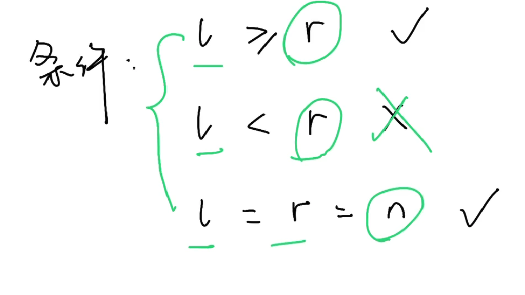 条件: l ≥ r ✓
l < r ×
l = r = n ✓